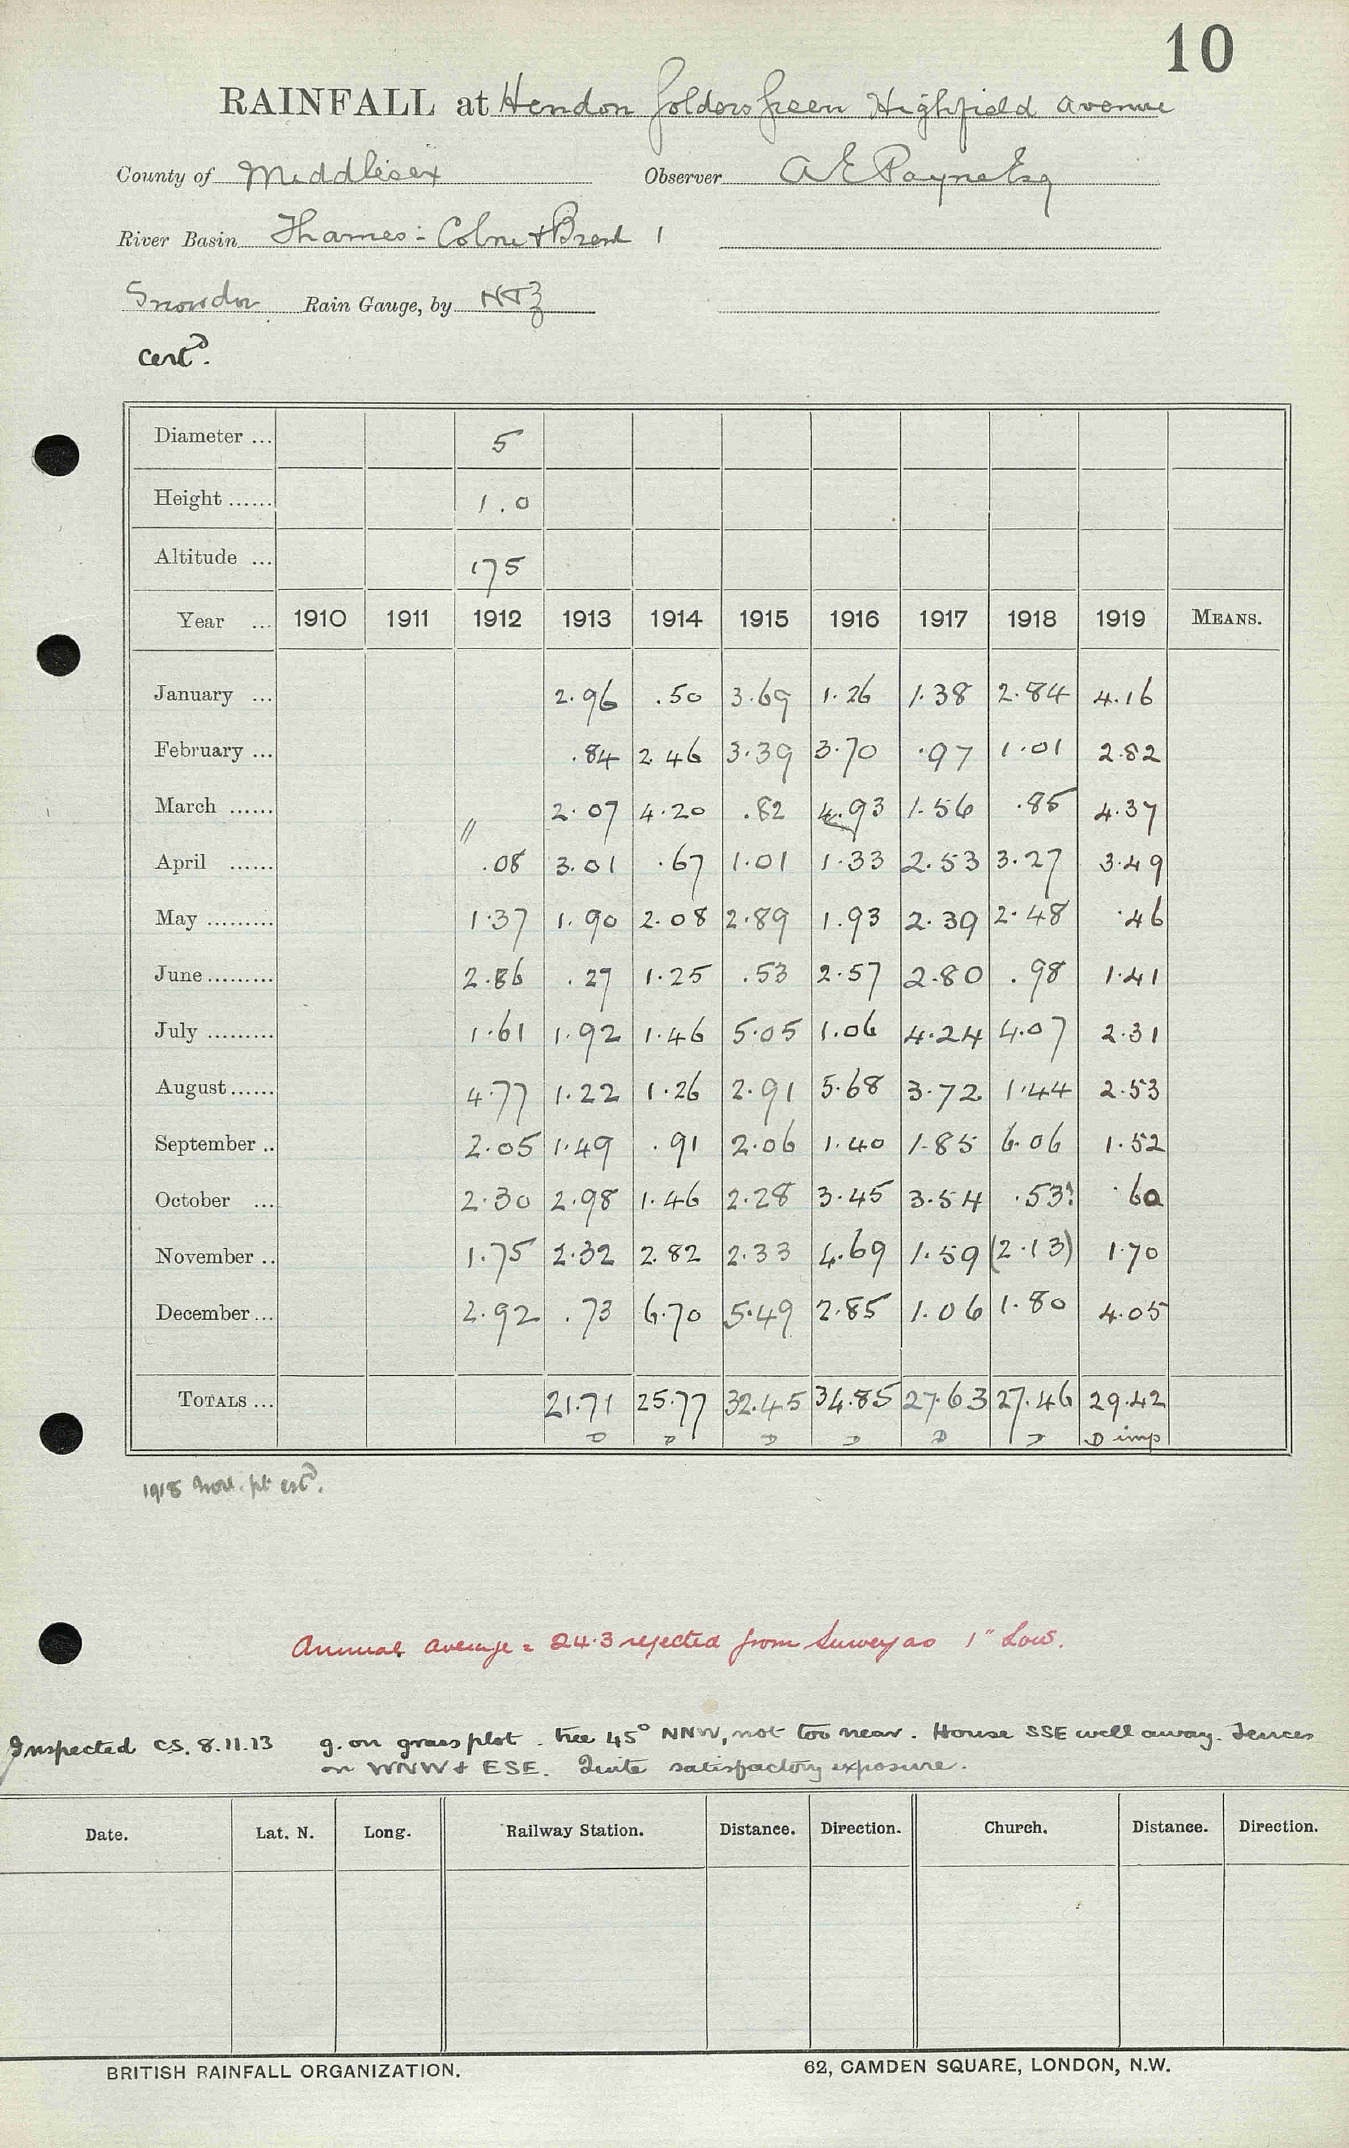 10
RAINFALL at Hendon Golders Green Highfield Avenue
County of Middlesex Observer A E Payne Esq
River Basin Thames:- Colne & Brent 1
Snowdon Rain Gauge, by N & Z
certd.
Diameter ... 5
Height ...... 1.0
Altitude ... 175
Year ... 1910 1911 1912 1913 1914 1915 1916 1917 1918 1919 MEANS.
January ... 2.96 .50 3.69 1.26 1.38 2.84 4.16
February ... .84 2.46 3.39 3.70 .97 1.01 2.82
March ...... " 2.07 4.20 .82 4.93 1.56 .85 4.37
April ...... .08 3.01 .67 1.01 1.33 2.53 3.27 3.49
May ......... 1.37 1.90 2.08 2.89 1.93 2.39 2.48 .46
June ......... 2.86 .27 1.25 .53 2.57 2.80 .98 1.41
July ......... 1.61 1.92 1.46 5.05 1.06 4.24 4.07 2.31
August ...... 4.77 1.22 1.26 2.91 5.68 3.72 1.44 2.53
September .. 2.05 1.49 .91 2.06 1.40 1.85 6.06 1.52
October ... 2.30 2.98 1.46 2.28 3.45 3.54 .53? .60
November .. 1.75 2.32 2.82 2.33 4.69 1.59 (2.13) 1.70
December ... 2.92 .73 6.70 5.49 2.85 1.06 1.80 4.05
TOTALS ... 21.71 25.77 32.45 34.85 27.63 27.46 29.42
D D D D D D D imp
1918 Nov. pt estd.
Annual average = 24.3 rejected from Survey as 1" Low.
Inspected CS. 8.11.13 g. on grass plot. tree 45° NNW, not too near. House SSE well away. Fences
on WNW & ESE. Quite satisfactory exposure.
Date. Lat. N. Long. Railway Station. Distance. Direction. Church. Distance. Direction.
BRITISH RAINFALL ORGANIZATION. 62, CAMDEN SQUARE, LONDON, N.W.